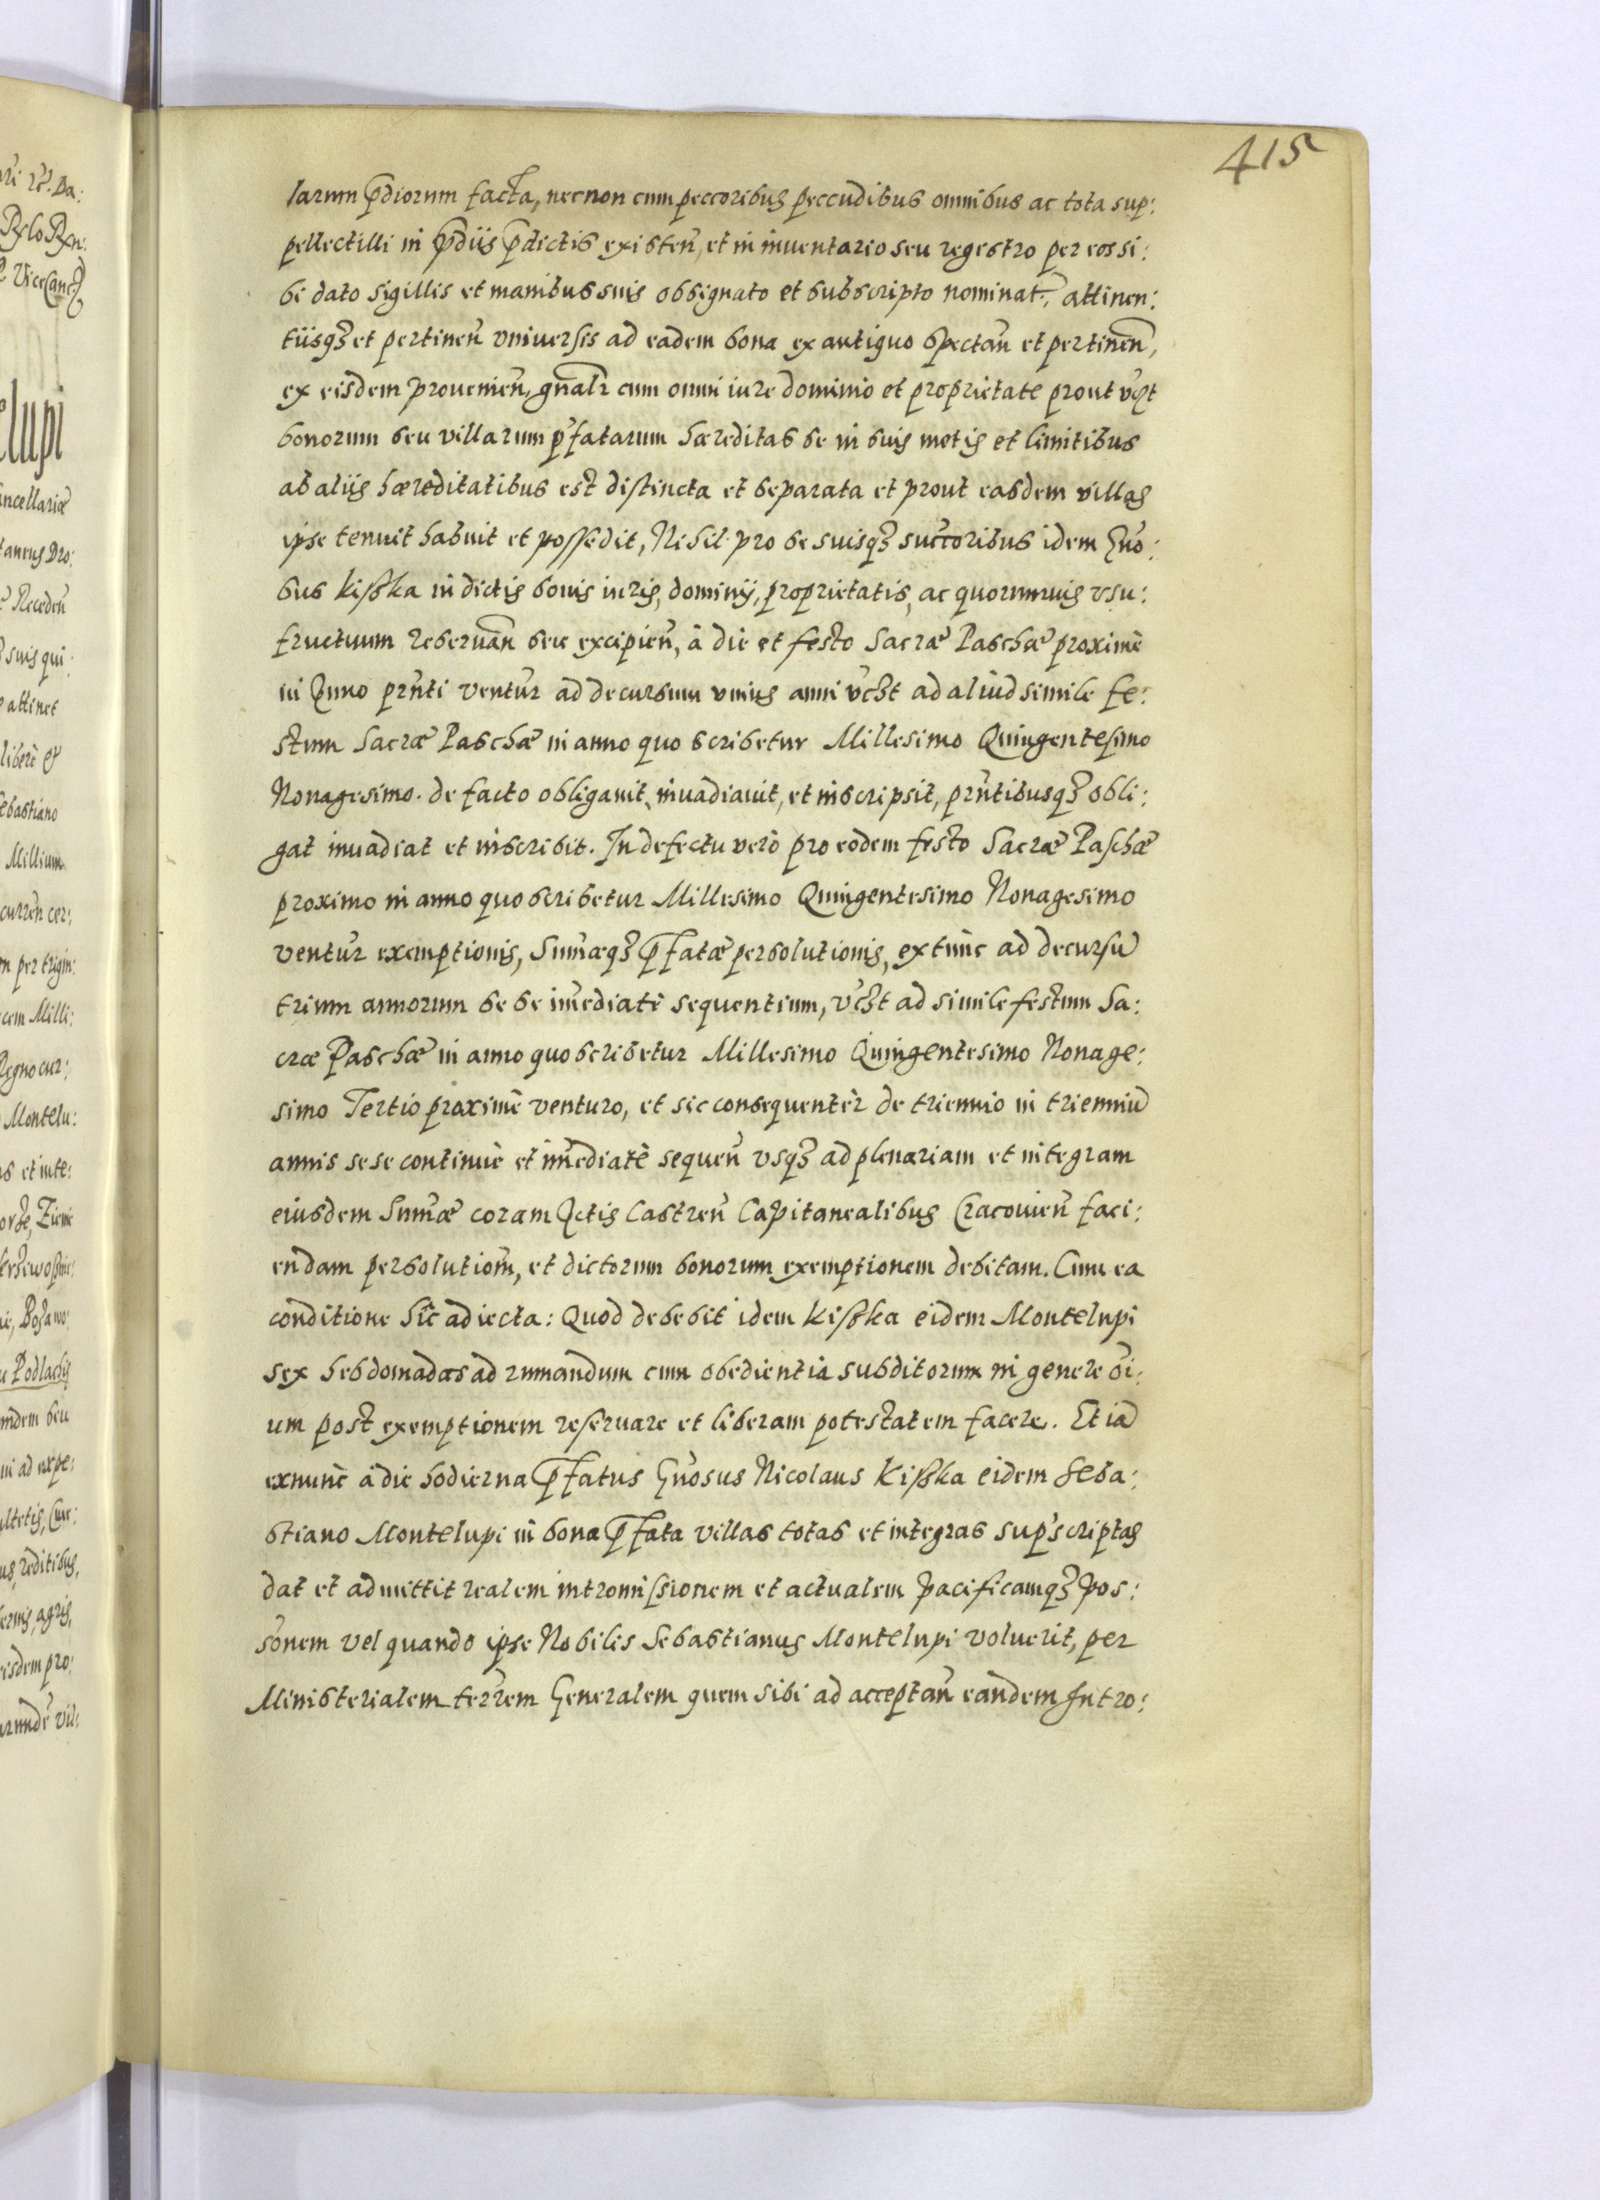 415
larum p̄diorum facta, necnon cum peccoribus peccudibus omnibus ac tota sup:
pellectilli in p̄diis p̄dictis existen̄, et in inventario seu regestro per eos si:
bi dato sigillis et manibus suis obsignato et subscripto nominat., attinen:
tiisqꝫ et pertinen̄ vniversis ad eadem bona ex antiquo spectan̄ et pertinen̄,
ex eisdem provenien̄, gn̄alr cum omni iure dominio et proprietate prout
bonorum seu villarum p̄fatarum hæreditas se in suis metis et limitibus
ab aliis hæreditatibus est distincta et separata et prout easdem villas
ipse tenuit habuit et possedit, Nihil pro se suisqꝫ succ̄oribus idem Gn̄o:
sus Kißka in dictis bonis iuris, dominij, proprietatis, ac quorumvis vsu:
fructuum reservan̄ seu excipien̄, à die et festo Sacræ Paschæ proximè
in Anno prn̄ti ventur̄ ad decursum vnius anni vcꝫt ad aliud simile fe:
stum Sacræ Paschæ in anno quo scribetur Millesimo Quingentesimo
Nonagesimo. de facto obligavit, invadiavit, et inscripsit, prn̄tibusqꝫ obli:
gat invadiat et inscribit. In defectu verò pro eodem festo Sacræ Paschæ
proximo in anno quo scribetur Millesimo Quingentesimo Nonagesimo
ventur̄ exemptionis, Sum̄æqꝫ p̄fatæ persolutionis, extunc ad decursū
trium annorum se se im̄ediatè sequentium, vcꝫt ad simile festum Sa:
cræ Paschæ in anno quo scribetur Millesimo Quingentesimo Nonage:
simo Tertio proximè venturo, et sic consequentèr de triennio in trienniū
annis sese continuè et im̄ediatè sequen̄ vsqꝫ ad plenariam et integram
eiusdem Sum̄æ coram Actis Castren̄ Capitanealibus Cracovien̄ faci:
endam persolutiom̄, et dictorum bonorum exemptionem debitam. Cum ea
conditione hîc adiecta: Quod debebit idem Kißka eidem Montelupi
sex hebdomadas ad rumandum cum obedientia subditorum in genere oī:
um post exemptionem reservare et liberam potestatem facere. Et iā
exnunc à die hodierna p̄fatus Gn̄osus Nicolaus Kißka eidem Seba:
stiano Montelupi in bona p̄fata villas totas et integras sup̄scriptas
dat et admittit realem intromissionem et actualem pacificamqꝫ pos:
s̄onem vel quando ipse Nobilis Sebastianus Montelupi voluerit, per
Ministerialem terr̄em Generalem quem sibi ad acceptan̄ eandem Intro: